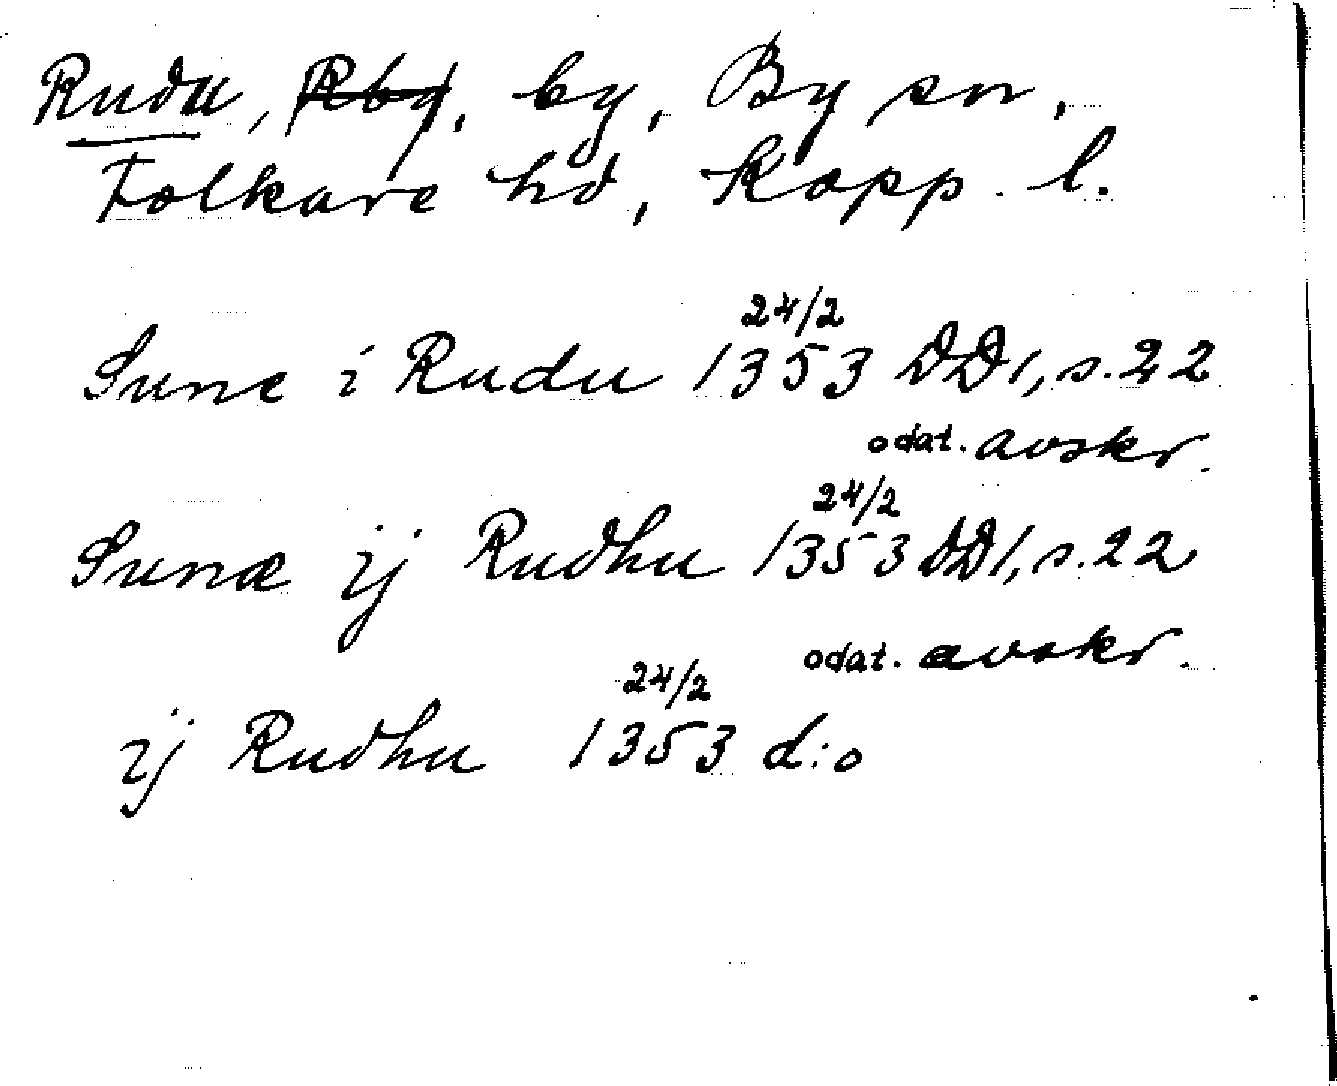 Rudu, Rby, by, By sn,
Folkare hd, Kopp. l.
24/2
Sune i Rudu 1353 DD1, s. 22
odat. avskr.
24/2
Sunæ ij Rudhu 1353 DD1, s. 22
odat. avskr.
24/2
ij Rudhu 1353 d:o